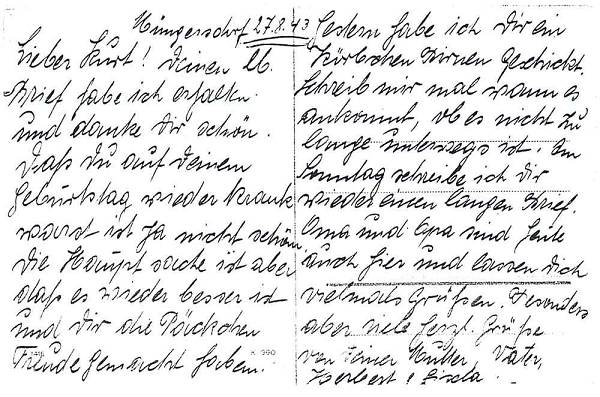 Müngersdorf 27.8.43
Lieber Kurt! Deinen lb.
Brief habe ich erhalten
und danke Dir schön.
Daß Du auf Deinem
Geburtstag wieder krank
warst ist ja nicht schön
die Hauptsache ist aber
daß es wieder besser ist
und Dir die Päckchen
Freude gemacht haben.
Gestern habe ich Dir ein
Körbchen Birnen geschickt.
Schreib mir mal wann es
ankommt, ob es nicht zu
lange unterwegs ist. Am
Sonntag schreibe ich Dir
wieder einen langen Brief.
Oma und Opa sind heute
auch hier und lassen Dich
vielmals Grüßen. Besonders
aber viele herzl. Grüße
von Deiner Mutter, Vater,
Herbert & Gisela.